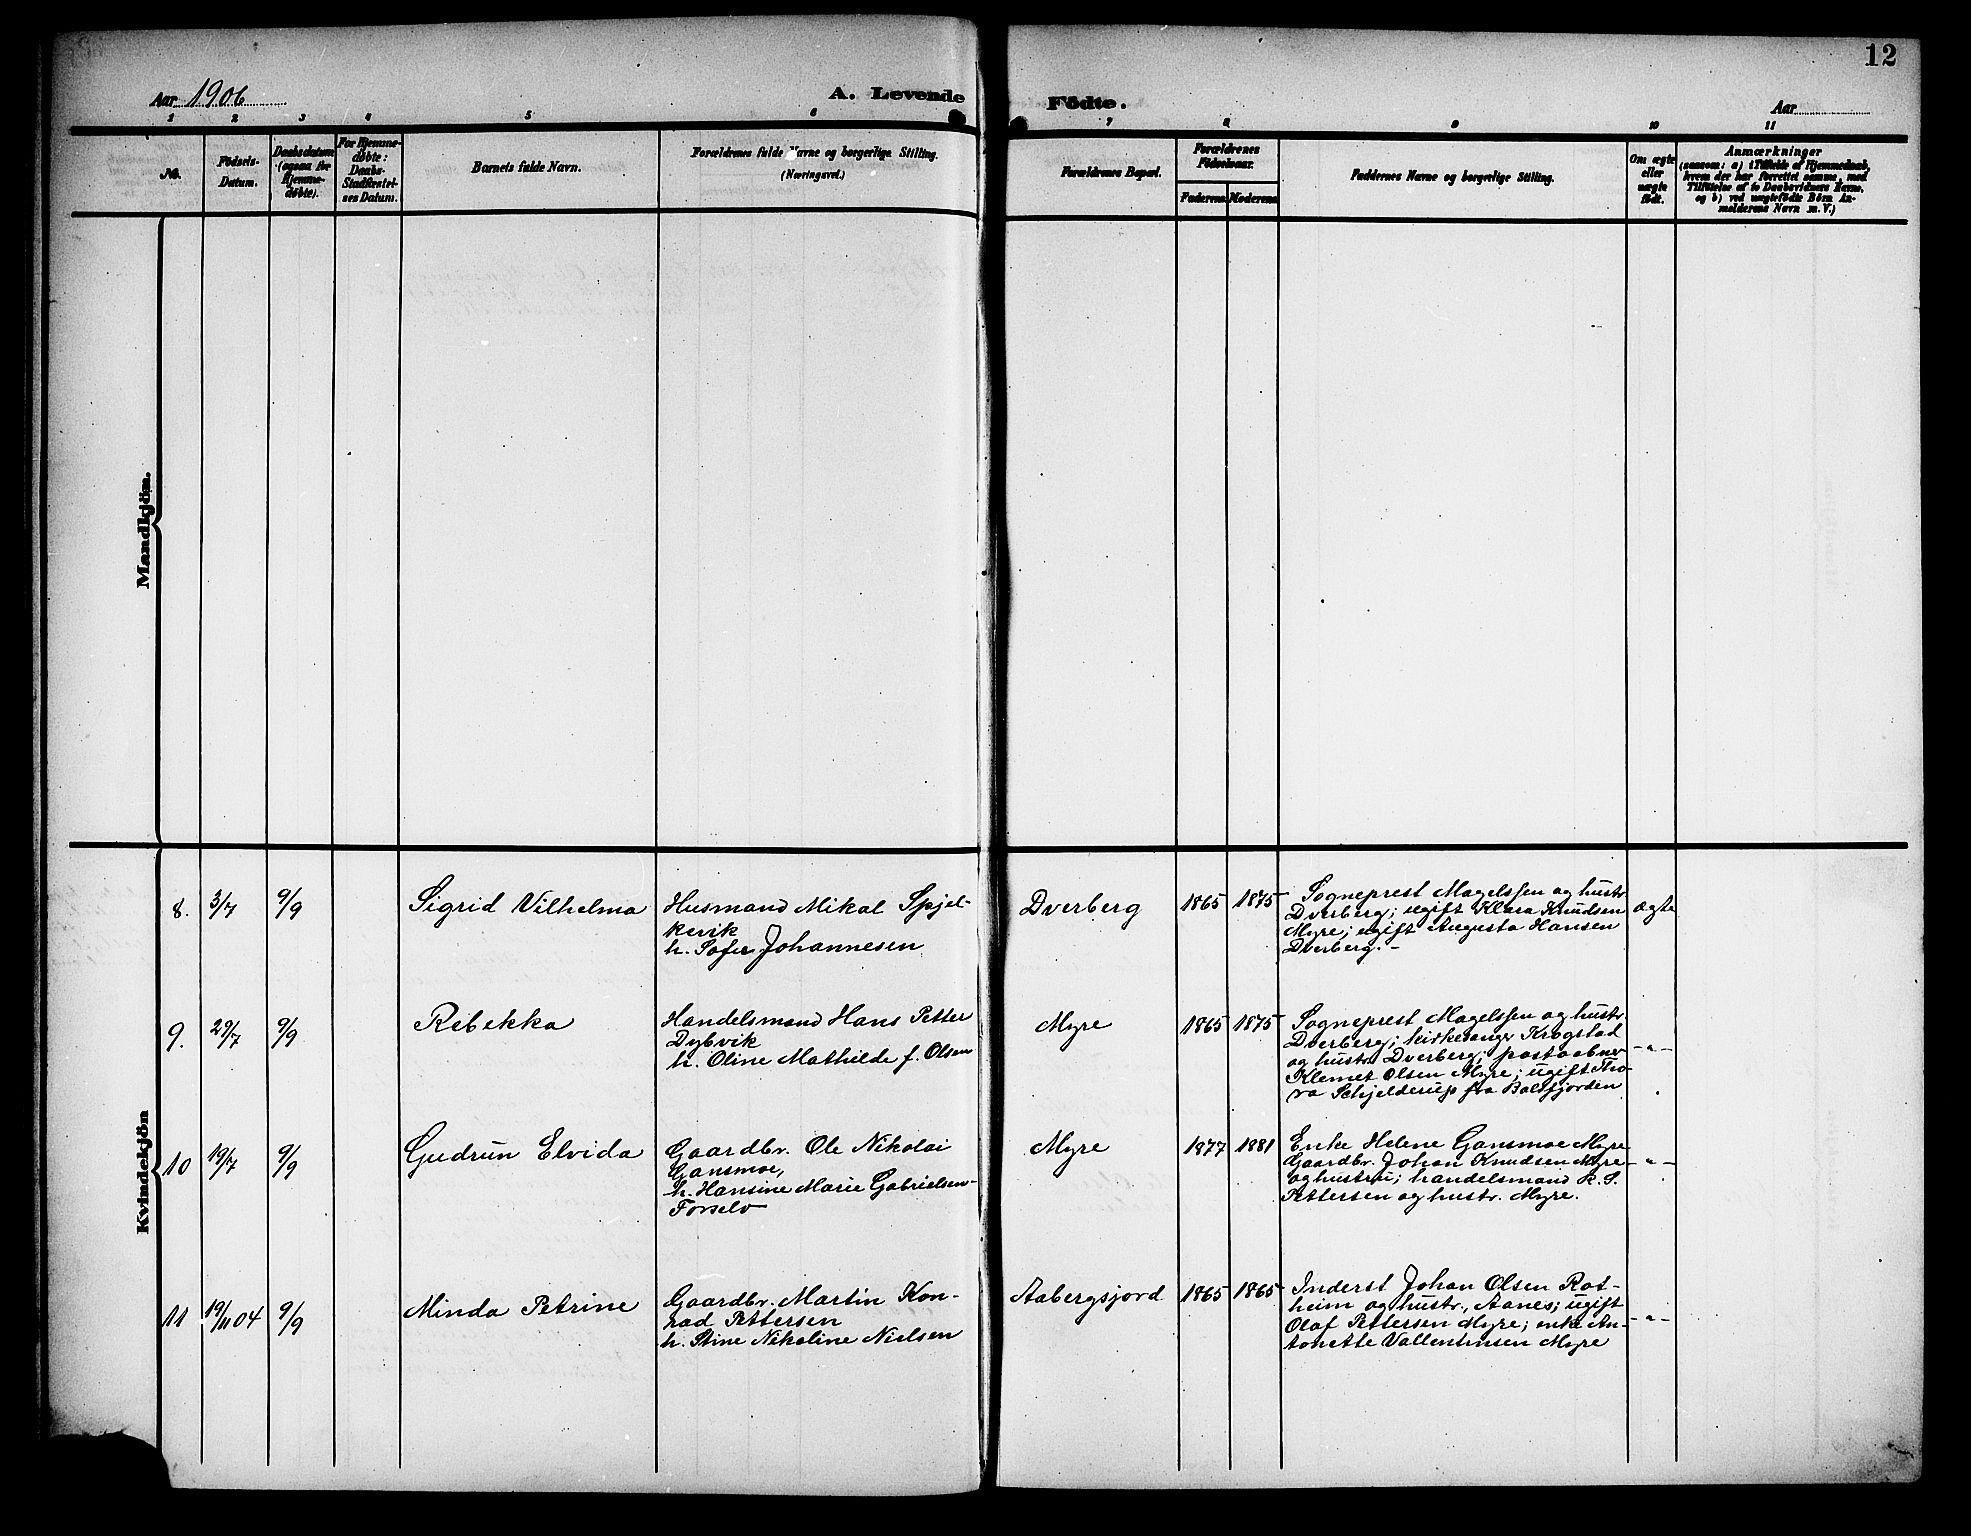 12
Aar 1906
A. Levende Födte.
Aar
1 2 3 4 5 6 7 8 9 10 11
No.
Födsels-
Datum.
Daabsdatum
(ogsaa for
Hjemme-
döbte).
For Hjemme-
döbte:
Daabs-
Stadfæstel-
ses Datum.
Barnets fulde Navn.
Forældrenes fulde Navne og borgerlige Stilling.
(Næringsvei.)
Forældrenes Bopæl.
Forældrenes
Födselsaar.
Faderens. Moderens.
Faddernes Navne og borgerlige Stilling.
Om ægte
eller
uægte
födt.
Anmærkninger
(saasom: a) i Tilfælde af Hjemmedaab,
hvem der har forrettet samme, med
Tilföielse af to Daabsvidners Navne,
og b) ved uægtefödte Börn An-
melderens Navn m. V.)
Mandkjön.
Kvindekjön
8. 3/7 9/9
Sigrid Vilhelma
Husmand Mikal Spjel-
kevik
h. Sofie Johannesen
Dverberg
1865 1875
Sogneprest Magelssen og hustr
Dverberg; ugift Klara Knudsen
Myre; ugift Augusta Hansen
Dverberg.-
ægte
9. 29/7 9/9
Rebekka
Handelsmand Hans Petter
Dybvik
h. Oline Mathilde f. Olsen
Myre
1865 1875
Sogneprest Magelssen og hustr.
Dverberg; kirkesanger Krogstad
og hustr. Dverberg; postaabner
Klemet Olsen Myre; ugift Tho-
ra Schjelderup fra Balsfjorden
-"-
10 19/7 9/9
Gudrun Elvida
Gaardbr. Ole Nikolai
Gansmoe,
h. Hansine Marie Gabrielsen
Forselv
Myre
1877 1881
Enke Helene Gansmoe Myre
Gaardbr. Johan Knudsen Myre
og hustru; handelsmand K. S.
Pettersen og hustr. Myre.
-"-
11 19/11 04 9/9
Minda Petrine
Gaardbr. Martin Kon-
rad Pettersen
h. Stine Nikoline Nielsen
Aabergsjord
1865 1865
Inderst Johan Olsen Rot-
heim og hustr., Aanes; ugift
Olaf Pettersen Myre; enke An-
tonette Vallentinsen Myre
-"-